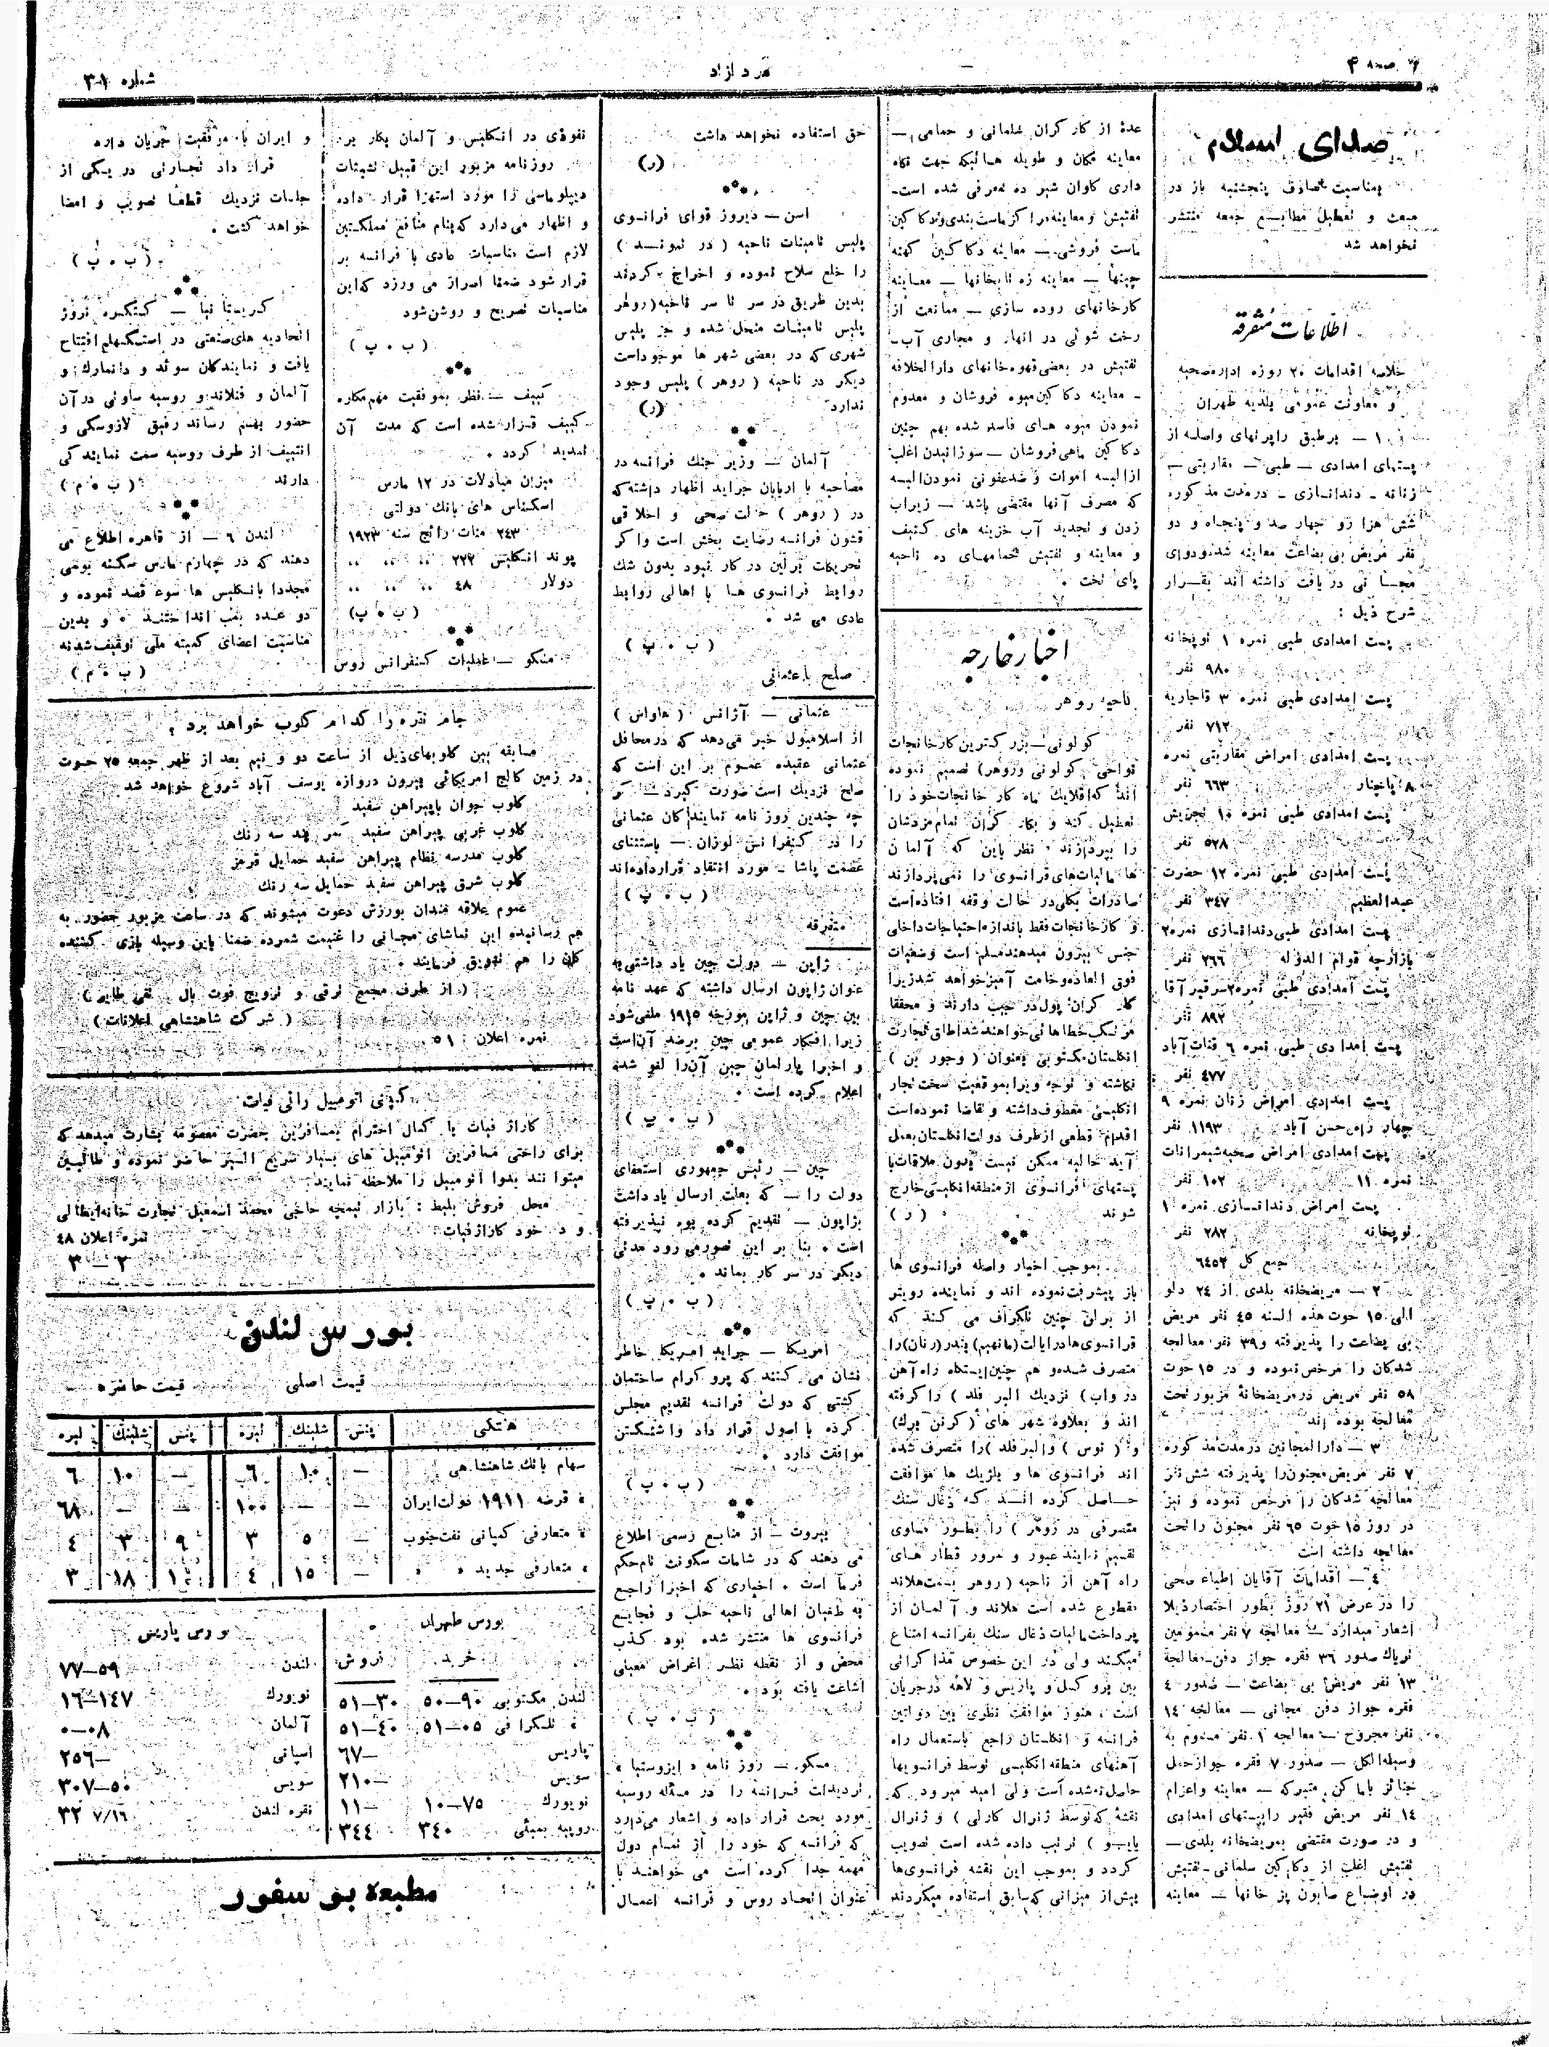 صفحه ۴
مرد آزاد
شماره ۳۱
صدای اسلام
بمناسبت تصادف پنجشنبه باز در
مبعث و تعطیل مطابع جمعه منتشر
نخواهد شد
اطلاعات متفرقه
خلاصه اقدامات ۲۰ روزه اداره صحیه
و معاونت عمومی بلدیه طهران
۱ — برطبق راپرتهای واصله از
پستهای امدادی — طبی — مقاربتی —
زنانه - دندانسازی - در مدت مذکوره
شش هزار و چهار صد و پنجاه و دو
نفر مریض بی بضاعت معاینه شده و دوای
مجانی دریافت داشته اند بقرار
شرح ذیل :
پست امدادی طبی نمره ۱ توپخانه
۹۸۰ نفر
پست امدادی طبی نمره ۳ قاجاریه
۷۱۲ نفر
پست امدادی امراض مقاربتی نمره
۸ پاچنار ۶۶۳ نفر
پست امدادی طبی نمره ۱۰ تجریش
۵۲۸ نفر
پست امدادی طبی نمره ۱۲ حضرت
عبدالعظیم ۳۴۷ نفر
پست امدادی طبی دندانسازی نمره ۲
بازارچه قوام الدوله ۲۶۶ نفر
پست امدادی طبی نمره ۲ سرقبر آقا
۸۹۲ نفر
پست امدادی طبی نمره ۶ قنات آباد
۴۷۷ نفر
پست امدادی امراض زنان نمره ۹
چهار راه حسن آباد ۱۱۹۳ نفر
پست امدادی امراض صحیه شمیرانات
نمره ۱۱ ۱۰۲ نفر
پست امراض دندانسازی نمره ۱
توپخانه ۲۸۲ نفر
جمع کل ۶۴۵۲
۲ — مریضخانه بلدی از ۲۴ دلو
الی ۱۵ حوت هذه السنه ۴۵ نفر مریض
بی بضاعت را پذیرفته و ۳۹ نفر معالجه
شدگان را مرخص نموده و در ۱۵ حوت
۵۸ نفر مریض در مریضخانهٔ مزبور تحت
معالجه بوده اند
۳ — دارالمجانین در مدت مذکوره
۷ نفر مریض مجنون را پذیرفته شش نفر
معالجه شدگان را مرخص نموده و نیز
در روز ۱۵ حوت ۶۵ نفر مجنون را تحت
معالجه داشته است
۴ — اقدامات آقایان اطباء صحی
را در عرض ۲۱ روز بطور اختصار ذیلا
اشعار میدارد — معالجه ۷ نفر مسمومین
تریاک صدور ۳۶ فقره جواز دفن - معالجهٔ
۱۳ نفر مریض بی بضاعت — صدور ۴
فقره جواز دفن مجانی — معالجه ۱۴
نفر مجروح — معالجه ۱ نفر مسموم به
وسیله الکل — صدور ۷ فقره جواز حمل
جنائز باماکن متبرکه — معاینه و اعزام
۱۴ نفر مریض فقیر را بپستهای امدادی
و در صورت مقتضی بمریضخانه بلدی —
تفتیش اغلب از دکاکین سلمانی - تفتیش
در اوضاع صابون پز خانها — معاینه
عدهٔ از کارگران سلمانی و حمامی —
معاینه مکان و طویله هائیکه جهت نگاه
داری گاوان شیر ده معرفی شده است —
تفتیش و معاینه مراکز ماست بندی و دکاکین
ماست فروشی — معاینه دکاکین کهنه
چینها — معاینه زه تابخانها — معاینه
کارخانهای روده سازی — ممانعت از
رخت شوئی در انهار و مجاری آب —
تفتیش در بعضی قهوه خانهای دارالخلافه
- معاینه دکاکین میوه فروشان و معدوم
نمودن میوه های فاسد شده بهم چنین
دکاکین ماهی فروشان — سوزانیدن اغلب
از البسه اموات و ضدعفونی نمودن البسه
که مصرف آنها مقتضی باشد — زیراب
زدن و تجدید آب خزینه های کثیف
و معاینه و تفتیش حمامهای ده ناحیه
پای تخت .
اخبار خارجه
ناحیهٔ روهر
کولونی — بزرگترین کارخانجات
نواحی کولونی و روهر) تصمیم نموده
اند که اقلا یک ماه کارخانجات خود را
تعطیل کنند و بکارگران تمام مزدشان
را بپردازند . نظر باین که آلمان
ها مالیات‌های فرانسوی را نمی پردازند
صادرات بکلی در حالت وقفه افتاده است
و کارخانجات فقط باندازه احتیاجات داخلی
جنس بیرون میدهند مسلم است وضعیات
فوق العاده وخامت آمیز خواهد شد زیرا
کارگران پول در جیب دارند و محققا
مرتکب خطاهائی خواهند شد اطاق تجارت
انگلستان مکتوبی بعنوان ( وجوربن )
نگاشته و توجه ویرا بموقعیت سخت تجار
انگلیسی معطوف داشته و تقاضا نموده است
اقدام قطعی از طرف دولت انگلستان بعمل
آید حالیه ممکن نیست بدون ملاقات با
پستهای فرانسوی از منطقه انگلیسی خارج
شوند . ( ر )
بموجب اخبار واصله فرانسوی ها
باز پیشرفت نموده اند و نماینده رویتر
از برلن چنین تلگراف می کنند که
فرانسوی ها در ایالت (مانهیم) بندر (رنان) را
متصرف شده و هم چنین ایستگاه راه آهن
در واب) نزدیک البر فلد ) را گرفته
اند و بعلاوه شهر های ( کرنن برک)
و ( نوس ) و البر فلد ) را متصرف شده
اند فرانسوی ها و بلژیک ها موافقت
حاصل کرده اند که ذغال سنک
متصرفی در روهر ) را بطور مساوی
تقسیم نمایند عبور و مرور قطار های
راه آهن از ناحیه ( روهر بسمت هلاند
مقطوع شده است هلاند و آلمان از
پرداخت مالیات ذغال سنک بفرانسه امتناع
میکنند ولی در این خصوص مذاکراتی
بین بروکسل و پاریس و لاهه در جریان
است . هنوز موافقت نظری بین دولتین
فرانسه و انگلستان راجع باستعمال راه
آهنهای منطقه انگلیسی توسط فرانسویها
حاصل نشده است ولی امید میرود که
نقشه که توسط ژنرال کادلی ) و ژنرال
پایو ) ترتیب داده شده است تصویب
گردد و بموجب این نقشه فرانسوی‌ها
بیش از میزانی که سابق استفاده میکردند
حق استفاده نخواهند داشت
(ر)
اسن — دیروز قوای فرانسوی
پلیس تامینات ناحیه ( در نبونسد )
را خلع سلاح نموده و اخراج کردند
بدین طریق در سر تا سر ناحیه ( روهر
پلیس تامینات منحل شده و جز پلیس
شهری که در بعضی شهر ها موجود است
دیگر در ناحیه ( روهر ) پلیس وجود
ندارد (ر)
آلمان — وزیر جنک فرانسه در
مصاحبه با اربابان جراید اظهار داشته که
در ( روهر ) حالت صحی و اخلاقی
قشون فرانسه رضایت بخش است و اگر
تحریکات برلین در کار نبود بدون شک
روابط فرانسوی ها با اهالی روابط
عادی می شد .
( ب . پ )
صلح با عثمانی
عثمانی — آژانس ( هاواس )
از اسلامبول خبر می‌دهد که در محافل
عثمانی عقیده عموم بر این است که
صلح نزدیک است صورت گیرد — گر
چه چندین روز نامه نمایندگان عثمانی
را در کنفرانس لوزان — باستثنای
عصمت پاشا - مورد انتقاد قرار داده اند
( ب . پ )
متفرقه
ژاپن — دولت چین یاد داشتی به
عنوان ژاپون ارسال داشته که عهد نامه
بین چین و ژاپن مورخه ۱۹۱۵ ملغی شود
زیرا افکار عمومی چین برضد آن است
و اخیرا پارلمان چین آن را لغو شده
اعلام کرده است .
( ب . پ )
چین — رئیس جمهوری استعفای
دولت را — که بعلت ارسال یادداشت
بژاپون — تقدیم کرده بود نپذیرفته
است . بنا بر این تصور می رود مدتی
دیگر در سر کار بماند .
( ب . پ )
امریکا — جراید امریکا خاطر
نشان می کنند که پروگرام ساختمان
کشتی که دولت فرانسه تقدیم مجلس
کرده با اصول قرار داد واشنگتن
موافقت دارد .
( ب . پ )
بیروت — از منابع رسمی اطلاع
می دهند که در شامات سکونت تام حکم
فرما است . اخباری که اخیرا راجع
به طغیان اهالی ناحیه حلب و فجایع
فرانسوی ها منتشر شده بود کذب
محض و از نقطه نظر اغراض معینی
اشاعت یافته بود .
( ب . پ )
مسکو — روز نامه « ایزوستیا »
تردیدات فرانسه را در مسئله روسیه
مورد بحث قرار داده و اشعار می‌دارد
که فرانسه که خود را از تمام دول
مهمه جدا کرده است می خواهند با
عنوان اتحاد روس و فرانسه اعمال
نفوذی در انگلیس و آلمان بکار برد
روزنامه مزبور این قبیل تشبثات
دیپلوماسی را مورد استهزا قرار داده
و اظهار می دارد که بنام منافع مملکتین
لازم است مناسبات عادی با فرانسه بر
قرار شود ضمنا اصرار می ورزد که این
مناسبات تصریح و روشن شود
( ب . پ )
کییف — نظر بموفقیت مهم مکاره
کییف قرار شده است که مدت آن
تمدید گردد .
میزان مبادلات در ۱۲ مارس
اسکناس های بانک دولتی
۲۴۳ منات رائج سنه ۱۹۲۳
پوند انگلیس ۲۲۲ ,, ,, ,,
دولار ۴۸ ,, ,, ,,
( ب . پ)
مسکو — عملیات کنفرانس روس
و ایران با موفقیت جریان دارد
قرار داد تجارتی در یکی از
جلسات نزدیک قطعا تصویب و امضا
خواهد گشت .
( ب . پ )
کریستیانیا — کنگره نروژ
اتحادیه های صنعتی در استکهلم افتتاح
یافت و نمایندگان سوئد و دانمارک و
آلمان و فنلاند و روسیه ساوتی در آن
حضور بهم رساند رفیق لازوسکی و
انتیپف از طرف روسیه سمت نمایندگی
دارند ( ب . م )
لندن ۶ — از قاهره اطلاع می
دهند که در چهارم مارس سکنه بومی
مجددا بانگلیس ها سوء قصد نموده و
دو عدد بمب انداختند . و بدین
مناسبت اعضای کمیته ملی توقیف شدند
( ب . م )
جام نقره را کدام کلوب خواهد برد ؟
مسابقه بین کلوبهای ذیل از ساعت دو و نیم بعد از ظهر جمعه ۲۵ حوت
در زمین کالج امریکائی بیرون دروازه یوسف آباد شروع خواهد شد
کلوب جوان با پیراهن سفید
کلوب غربی پیراهن سفید کمر بند سه رنگ
کلوب مدرسه نظام پیراهن سفید حمایل قرمز
کلوب شرق پیراهن سفید حمایل سه رنگ
عموم علاقه مندان بورزش دعوت میشوند که در ساعت مزبور حضور به
هم رسانیده این تماشای مجانی را غنیمت شمرده ضمنا باین وسیله بازی کننده
گان را هم تشویق فرمایند .
( از طرف مجمع ترقی و ترویج فوت بال )
( شرکت شاهنشاهی اعلانات )
نمره اعلان : ۵۱
کمپنی اتومبیل رانی فیات
گاراژ فیات با کمال احترام بمسافرین حضرت معصومه بشارت میدهد که
برای راحتی مسافرین اتومبیل های بسیار سریع السیر حاضر نموده و طالبین
میتوانند بدوا اتومبیل را ملاحظه نمایند
محل فروش بلیط : بازار تیمچه حاجی محمد اسمعیل تجارت خانه ایطالی
و در خود گاراژ فیات نمره اعلان ۴۸
۲—۳
بورس لندن
قیمت اصلی قیمت حاضره
هتکی پنس شلینک لیره پنس شلینک لیره
سهام بانک شاهنشاهی — ۱۰ ۶ — ۱۰ ۶
« قرضه ۱۹۱۱ دولت ایران — — ۱۰۰ — — ۶۸
« متعارفی کمپانی نفت جنوب — ۵ ۳ ۹ ۳ ۴
« متعارفی جدید « « — ۱۵ ۴ ۱½ ۱۸ ۳
بورس طهران
خرید فروش
لندن مکتوبی ۹۰—۵۰ ۳۰—۵۱
« تلگرافی ۰۵—۵۱ ۴۰—۵۱
پاریس —۶۷
سویس —۲۱۰
نویورک ۷۵—۱۰ —۱۱
روپیه بمبئی ۳۴۰ ۳۴۴
بورس پاریس
لندن ۵۹—۷۷
نویورک ۱۴۷—۱۶
آلمان ۰۸—۰
اسپانی —۲۵۶
سویس ۵۰—۳۰۷
نقره لندن ۷/۱۶ ۳۲
مطبعه بوسفور